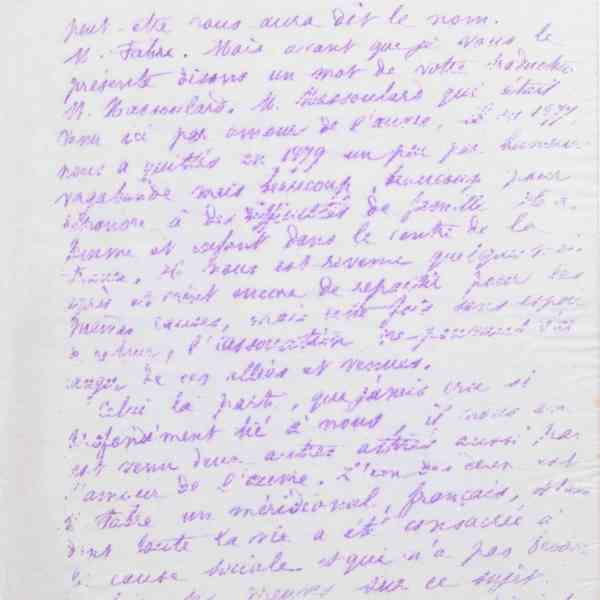 peut-être vous aura dit le nom.
M. Fabre. Mais avant que je vous le
présente disons un mot de votre traducteur
M. Massoulard. M. Massoulard qui était
venu ici par amour de l'œuvre, en 1877
nous a quittés en 1879 un peu par humeur
vagabonde mais beaucoup, beaucoup pour
à des difficultés de famille
femme et enfant dans le centre de la
France. Il nous est revenu quelques
après et vient encore de repartir pour les
mêmes causes, mais cette fois sans espoir
de retour, l'association ne pouvant
de ces allées et venues.
Celui là parti, que j'avais cru si
profondément lié à nous il nous en
est venu deux autres attirés aussi par
l'amour de l'œuvre. L'un des deux est
M. Fabre un méridional, français,
dont toute la vie a été consacrée à
la cause sociale et qui n'a pas
sur ce sujet.